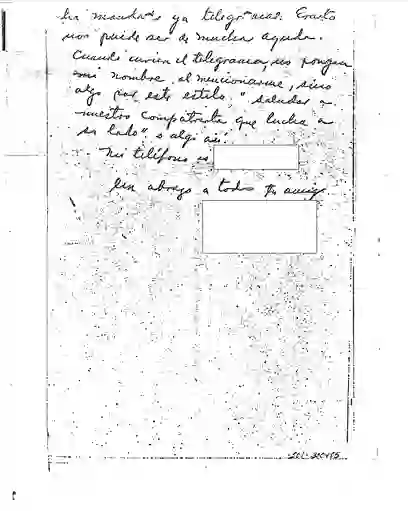 ha mandado ya telegramas. Esto
nos puede ser de mucha ayuda.
Cuando envien el telegrama, no pongan
mi nombre al mencionarme, sino
algo por este estilo, "saludar a
nuestro compatriota que lucha a
su lado" o algo asi.
Mi teléfono es
Un abrazo a todos tu amigo